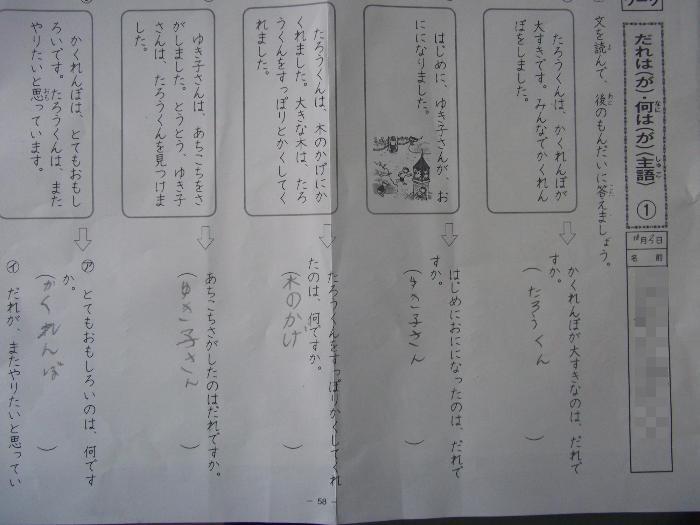 ワーク
だれは(が)・何は(が)〈主語〉 ①
月 日
名前
文を読んで、後のもんだいに答えましょう。
たろうくんは、かくれんぼが
大すきです。みんなでかくれん
ぼをしました。
かくれんぼが大すきなのは、だれで
すか。
(たろうくん)
はじめに、ゆき子さんが、お
にになりました。
はじめにおにになったのは、だれで
すか。
(ゆき子さん)
たろうくんは、木のかげにか
くれました。大きな木は、たろ
うくんをすっぽりとかくしてく
れました。
たろうくんをすっぽりかくしてくれ
たのは、何ですか。
(木のかげ)
ゆき子さんは、あちこちをさ
がしました。とうとう、ゆき子
さんは、たろうくんを見つけま
した。
あちこちさがしたのはだれですか。
(ゆき子さん)
かくれんぼは、とてもおもし
ろいです。たろうくんは、また
やりたいと思っています。
㋐ とてもおもしろいのは、何です
か。
(かくれんぼ)
㋑ だれが、またやりたいと思ってい
- 58 -